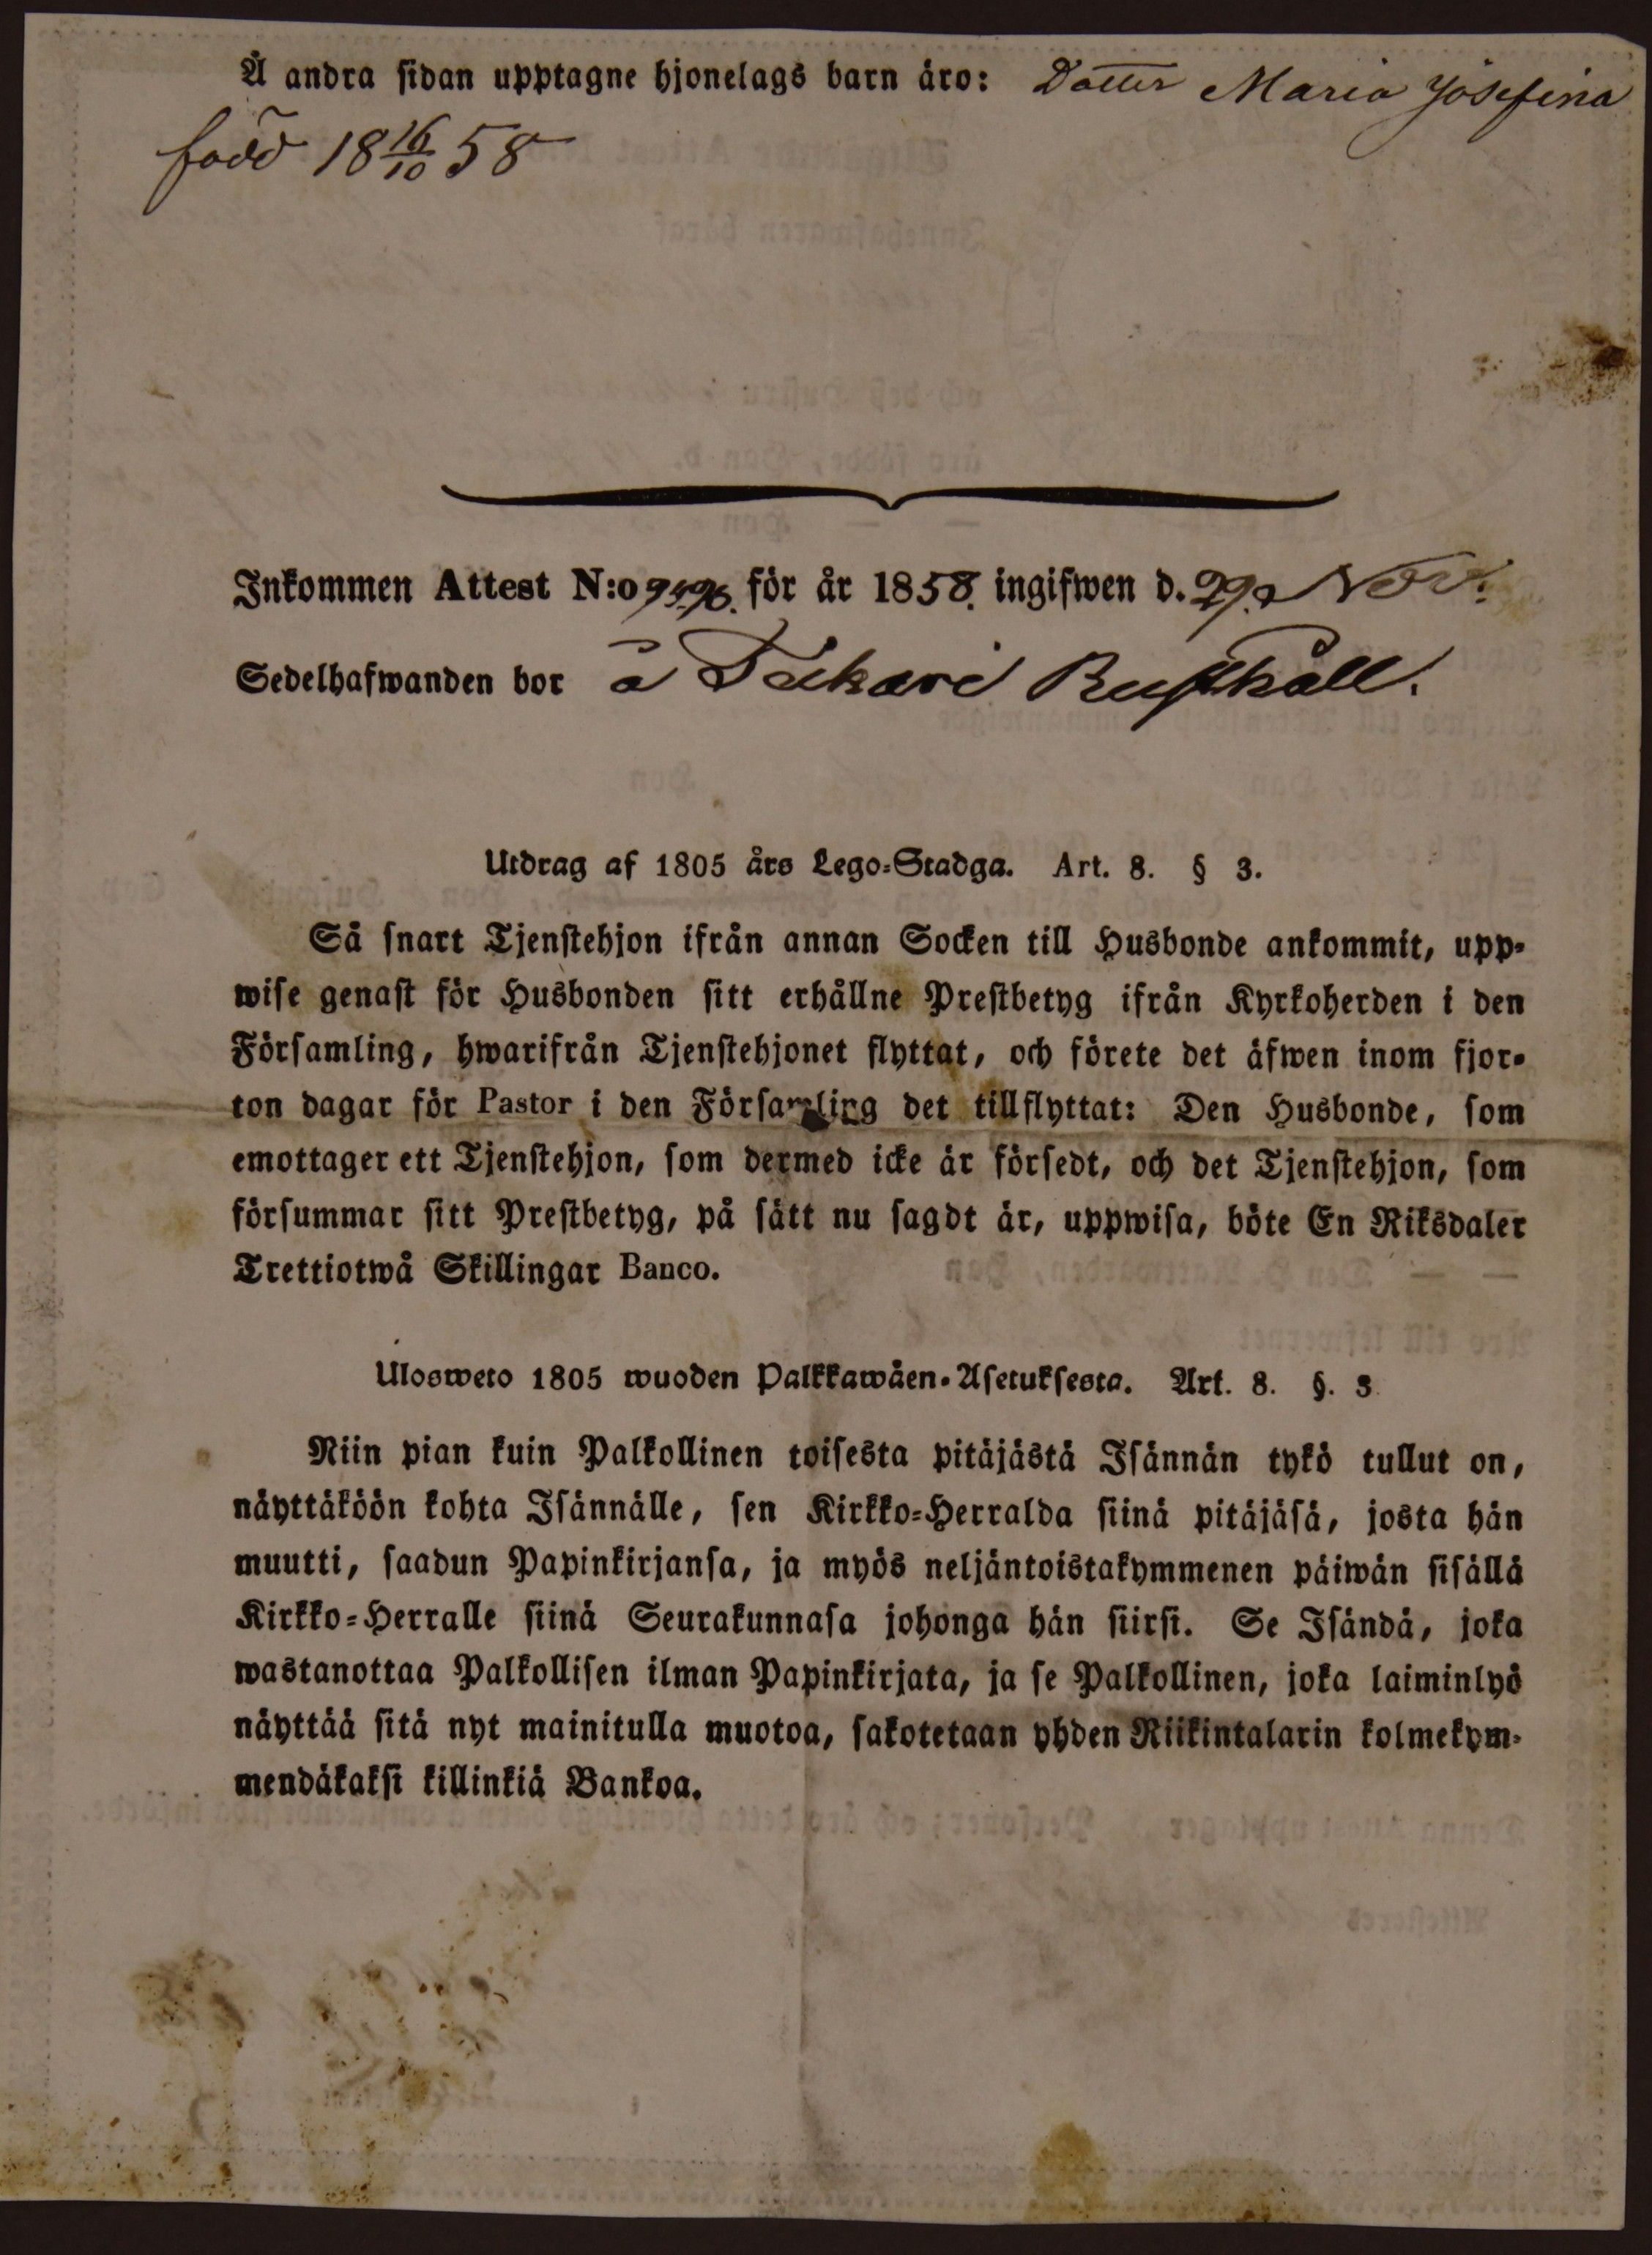 Å andra sidan upptagne hjonelags barn äro: Dotter Maria Josefina
född 18 16/10 58
Inkommen Attest N:o för år 1858. ingifwen d. 29. Nov.
Sedelhafwanden bor å Rusthåll.
Utdrag af 1805 års Lego-Stadga. Art. 8. § 3.
Så snart Tjenstehjon ifrån annan Socken till Husbonde ankommit, upp-
wise genast för Husbonden sitt erhållne Prestbetyg ifrån Kyrkoherden i den
Församling, hwarifrån Tjenstehjonet flyttat, och förete det äfwen inom fjor-
ton dagar för Pastor i den Församling det tillflyttat: Den Husbonde, som
emottager ett Tjenstehjon, som dermed icke är försedt, och det Tjenstehjon, som
försummar sitt Prestbetyg, på sätt nu sagdt är, uppwisa, böte En Riksdaler
Trettiotwå Skillingar Banco.
Ulosweto 1805 wuoden Palkkawäen-Asetuksesta. Art. 8. §. 3
Niin pian kuin Palkollinen toisesta pitäjästä Isännän tykö tullut on,
näyttäköön kohta Isännälle, sen Kirkko-Herralda siinä pitäjäsä, josta hän
muutti, saadun Papinkirjansa, ja myös neljäntoistakymmenen päiwän sisällä
Kirkko-Herralle siinä Seurakunnasa johonga hän siirsi. Se Isändä, joka
wastanottaa Palkollisen ilman Papinkirjata, ja se Palkollinen, joka laiminlyö
näyttää sitä nyt mainitulla muotoa, sakotetaan yhden Riikintalarin kolmekym-
mendäkaksi killinkiä Bankoa.